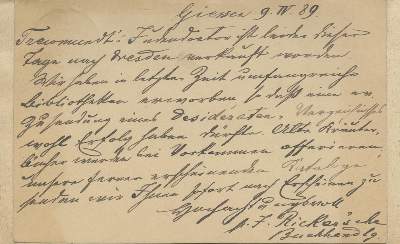 Giessen 9. IV 89.
Trewendt's Indendoctor ist leider dieser
Tage nach Dresden verkauft worden
Wir haben in letzter Zeit umfangreiche
Bibliotheken erworben, so daß eine
Zusendung eines Desideraten-Verzeichnisses
wohl Erfolg haben dürfte. Alte Kräuter
bücher werden bei Vorkommen offerieren
unsere ferner erscheinenden Kataloge
senden wir Ihnen sofort nach Erscheinen zu
Hochachtungsvoll
J. Ricker'sche
Buchhandlg